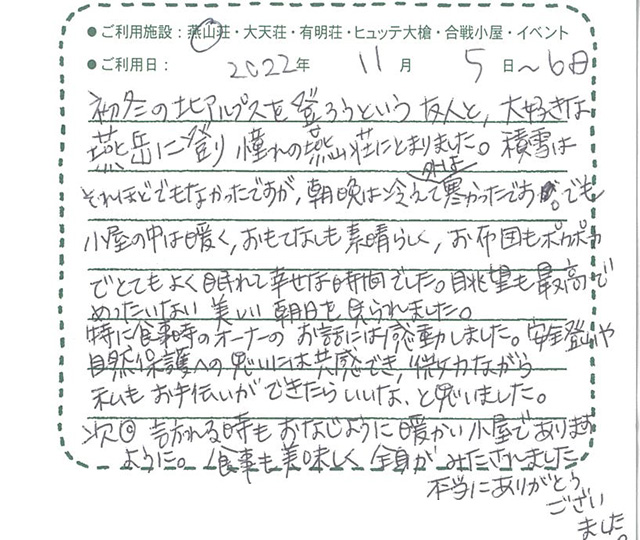 ●ご利用施設：燕山荘・大天荘・有明荘・ヒュッテ大槍・合戦小屋・イベント
●ご利用日： 2022年 11月 5日～6日
初冬の北アルプスを登ろうという友人と、大好きな
燕岳に登り憧れの燕山荘にとまりました。積雪は
それほどでもなかったですが、朝晩は冷えて外は寒かったです。でも
小屋の中は暖く、おもてなしも素晴らしく、お布団もポカポカ
でとてもよく眠れて幸せな時間でした。眺望も最高で
めったいない美しい朝日を見られました。
特に食事時のオーナーのお話には感動しました。安全登山や
自然保護への思いには共感でき、微力ながら
私もお手伝いができたらいいな、と思いました。
次回訪れる時もおなじように暖かい小屋であります
ように。食事も美味しく全身がみたされました
本当にありがとう
ござい
ました。